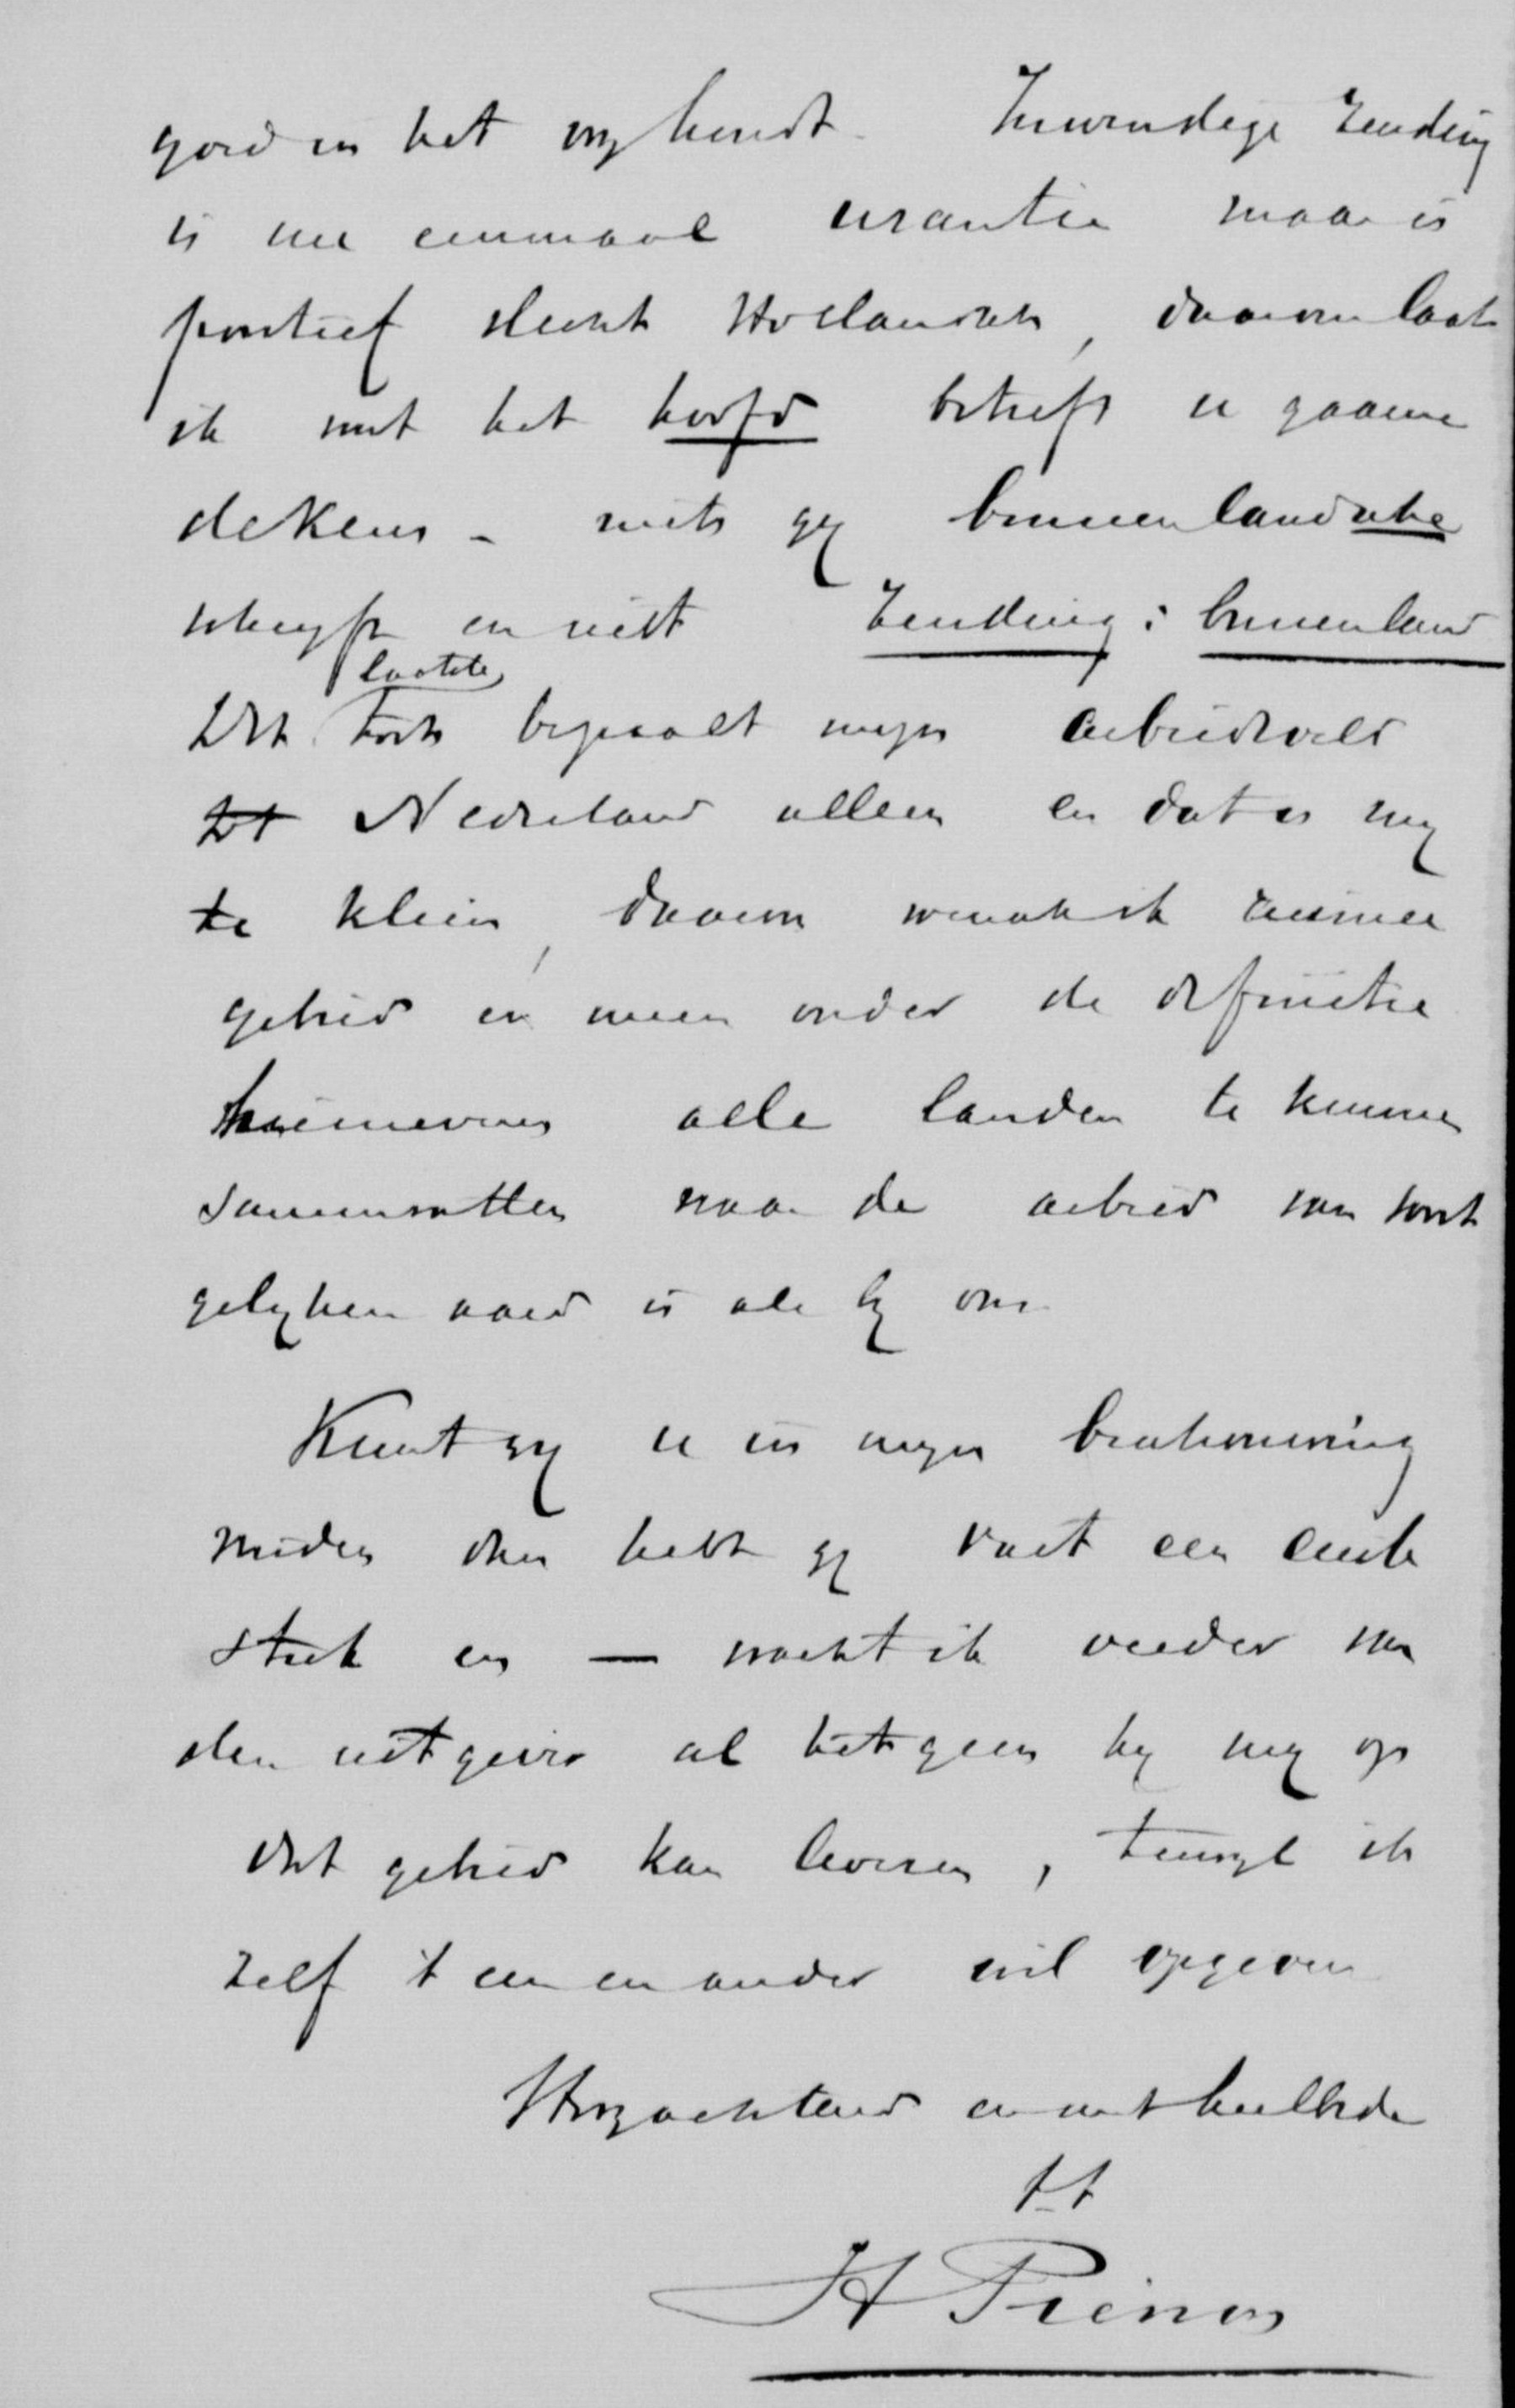 goed en het my kendt. Inwendige Zending
is nu eenmaal usantie maar is
positief slecht Hollandsch, daarom laat
ik wat het hoofd betreft u gaarne
dekens - mits gy binnenlandsche
schryft en niet Zending : binnenland
laatste
Dit toch bepaalt myn arbeidsveld
tot Nederland alleen en dat is my
te klein, daarom wensch ik ruimer
gebied en meen onder de definitie
alle landen te kunnen
samenvatten waar de arbeid van soort
gelyken aard is als by ons.
Kunt gy u in myn beschouwing
vinden dan hebt gy vast een eerste
stuk en — wacht ik verder van
den uitgever al hetgeen hy my op
dit gebied kan leveren, terwyl ik
zelf 't een en ander wil opgeven
Hoogachtend en met heilbede
tt
H Pierson